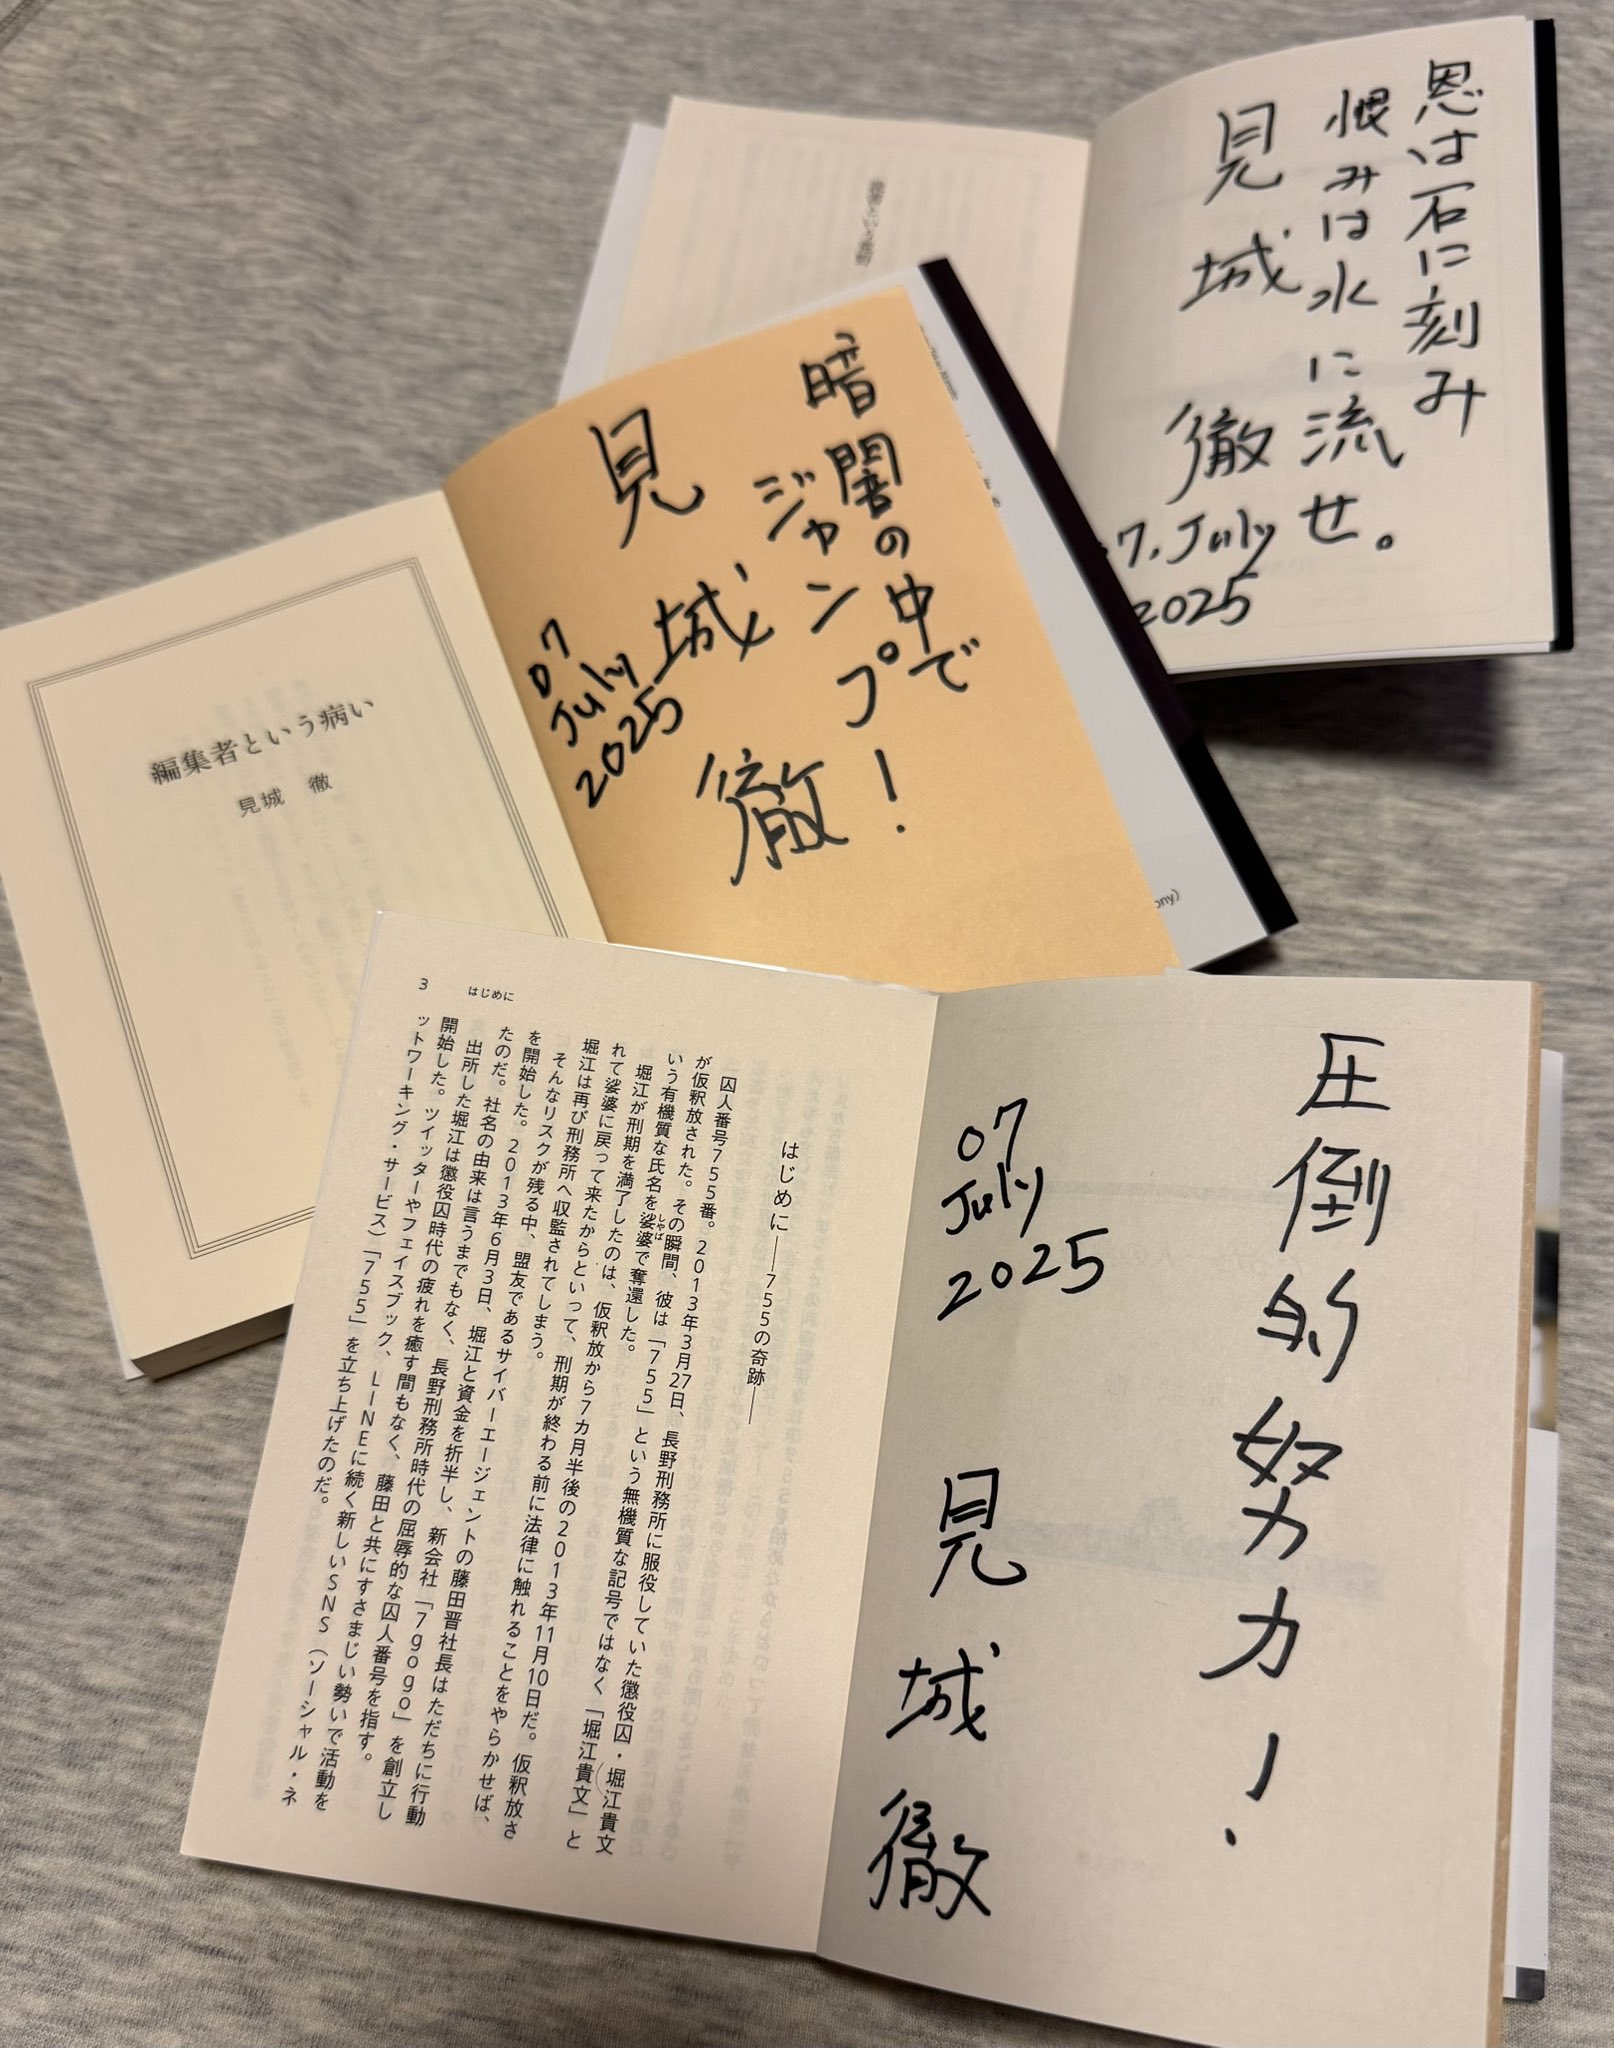 恩は石に刻み
恨みは水に流せ。
見城 徹
7, July
2025
暗闇の中で
ジャンプ!
見城 徹
07
July
2025
編集者という病い
見城 徹
圧倒的努力!
07
July
2025
見城 徹
3 はじめに
はじめに――755の奇跡――
囚人番号755番。2013年3月27日、長野刑務所に服役していた懲役囚・堀江貴文
が仮釈放された。その瞬間、彼は「755」という無機質な記号ではなく「堀江貴文」と
いう有機質な氏名を娑婆で奪還した。
しゃば
堀江が刑期を満了したのは、仮釈放から7カ月半後の2013年11月10日だ。仮釈放さ
れて娑婆に戻って来たからといって、刑期が終わる前に法律に触れることをやらかせば、
堀江は再び刑務所へ収監されてしまう。
そんなリスクが残る中、盟友であるサイバーエージェントの藤田晋社長はただちに行動
を開始した。2013年6月3日、堀江と資金を折半し、新会社「7gogo」を創立し
たのだ。社名の由来は言うまでもなく、長野刑務所時代の屈辱的な囚人番号を指す。
出所した堀江は懲役囚時代の疲れを癒す間もなく、藤田と共にすさまじい勢いで活動を
開始した。ツイッターやフェイスブック、LINEに続く新しいSNS(ソーシャル・ネ
ットワーキング・サービス)「755」を立ち上げたのだ。